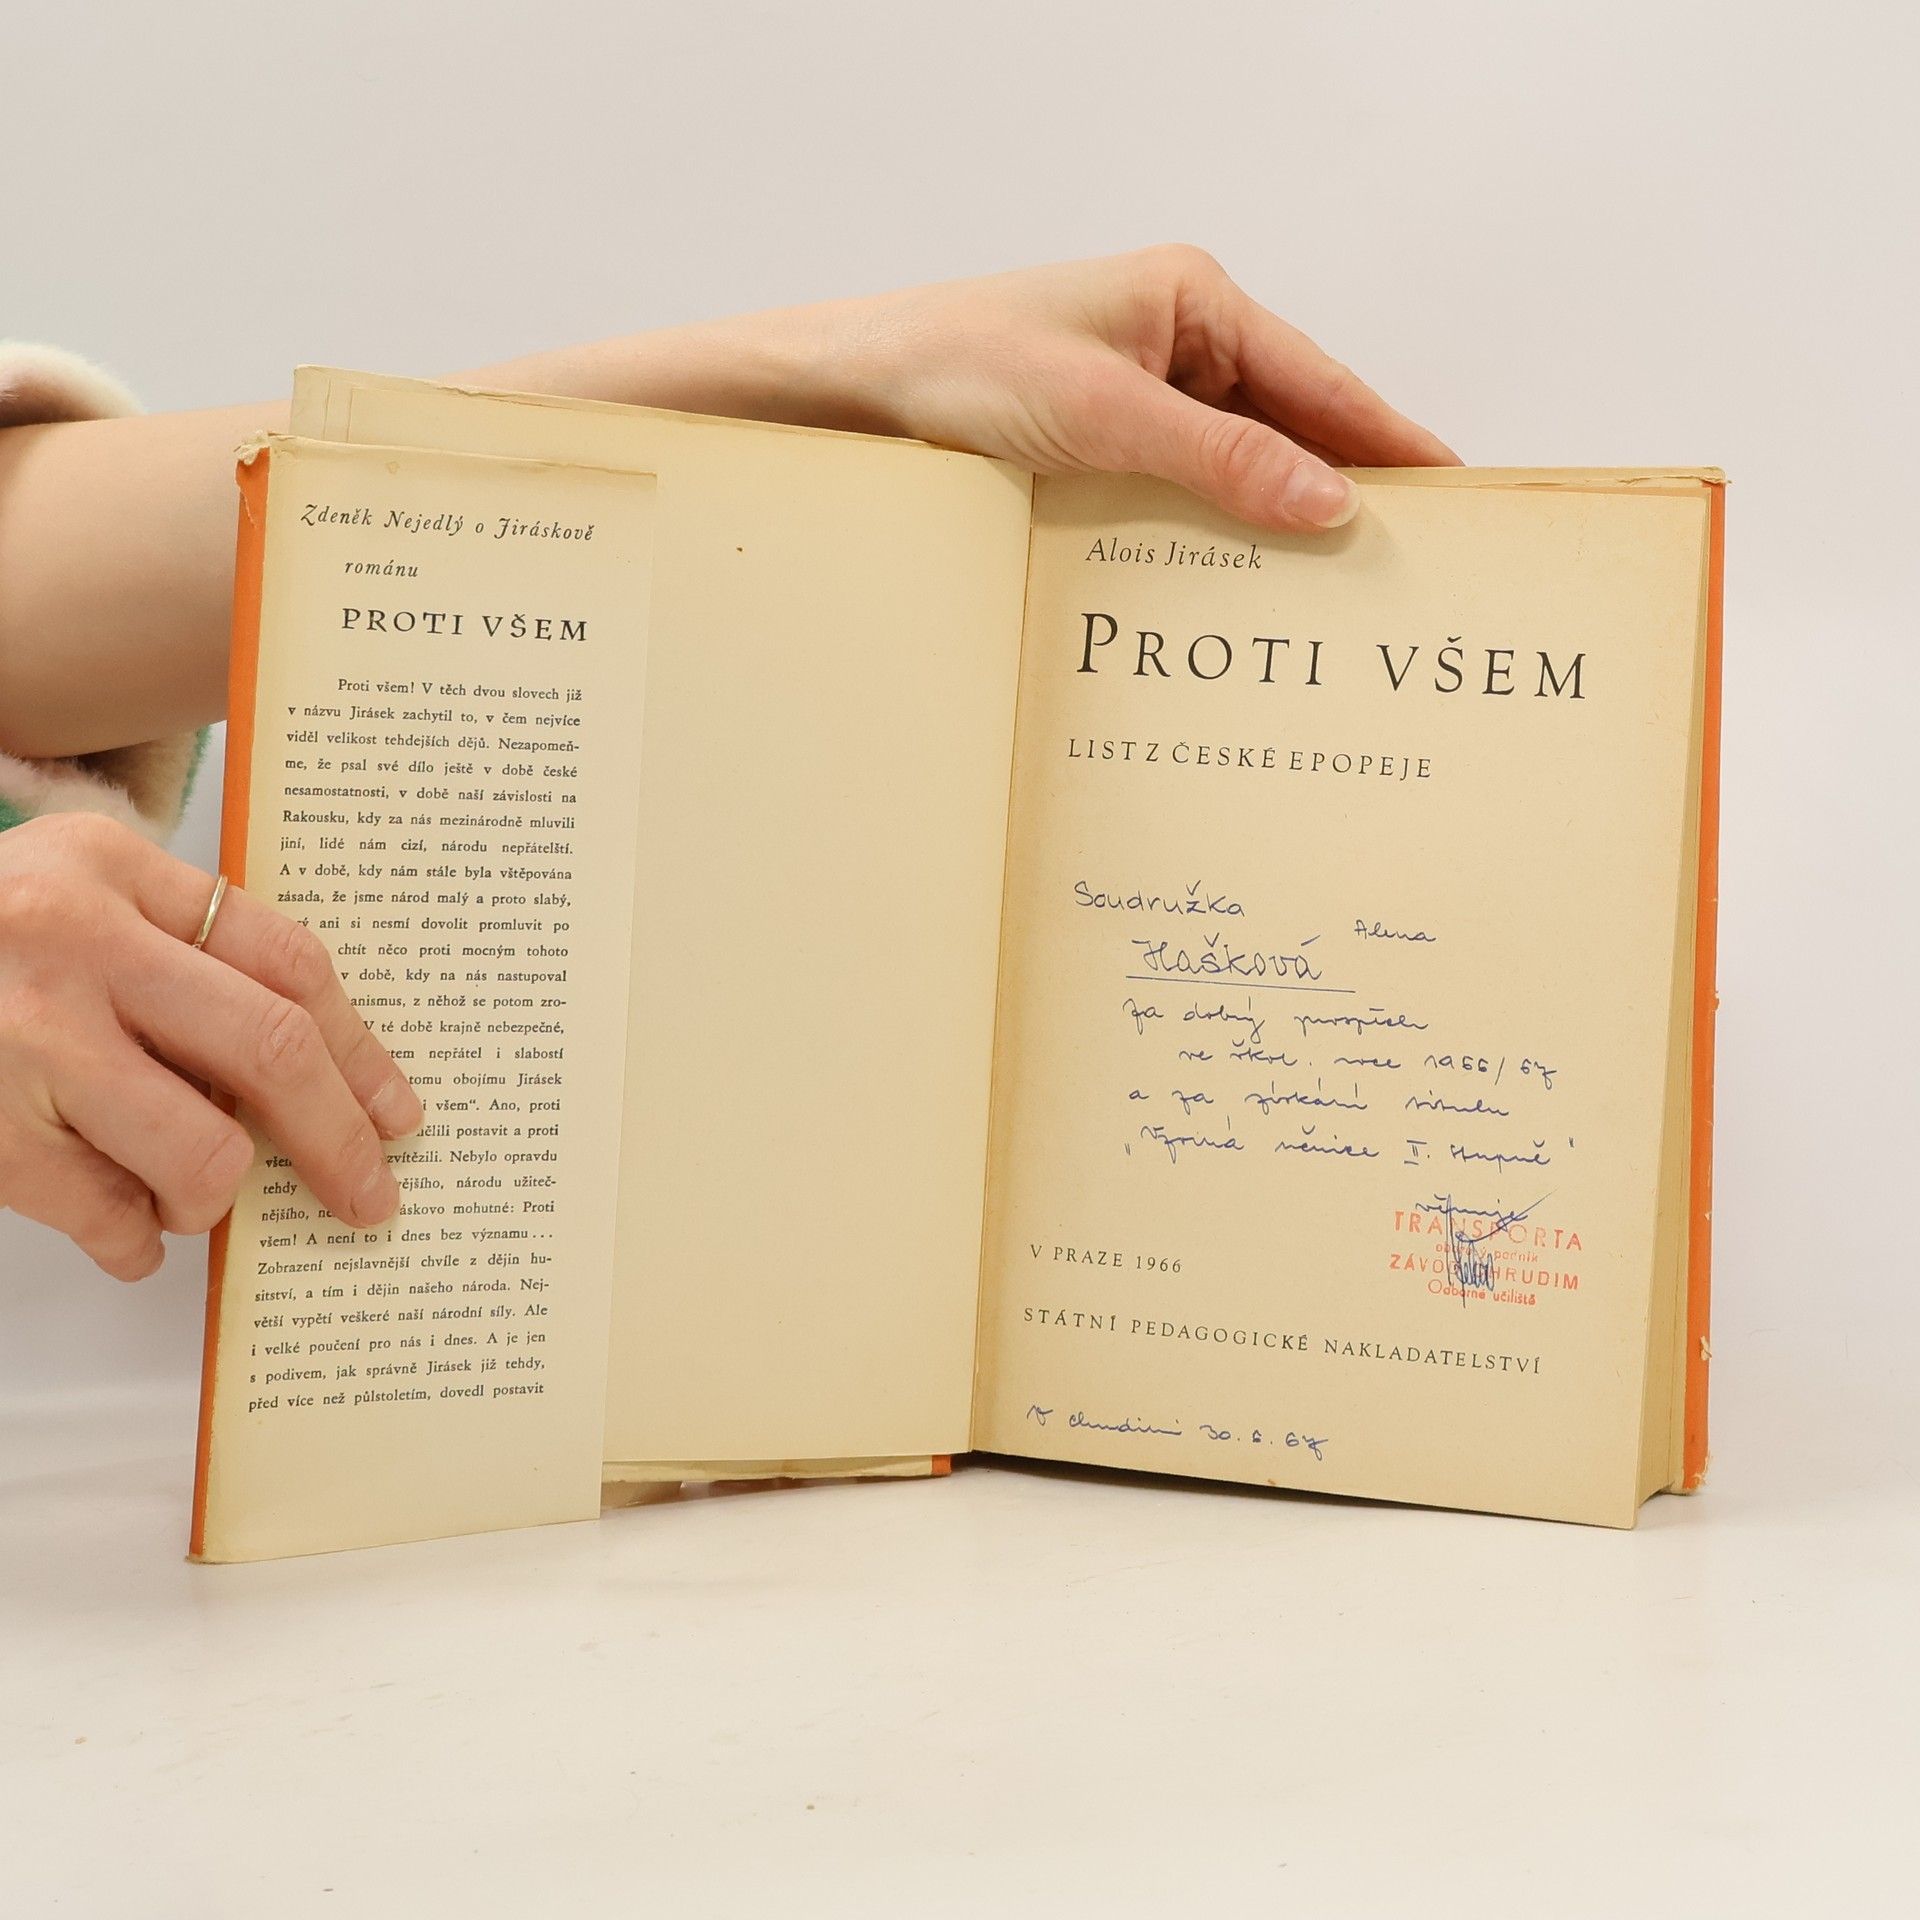 Zdeněk Nejedlý o Jiráskově
románu
PROTI VŠEM
Proti všem! V těch dvou slovech již
v názvu Jirásek zachytil to, v čem nejvíce
viděl velikost tehdejších dějů. Nezapomeň-
me, že psal své dílo ještě v době české
nesamostatnosti, v době naší závislosti na
Rakousku, kdy za nás mezinárodně mluvili
jiní, lidé nám cizí, národu nepřátelští.
A v době, kdy nám stále byla vštěpována
zásada, že jsme národ malý a proto slabý,
ani si nesmí dovolit promluvit po
chtít něco proti mocným tohoto
v době, kdy na nás nastupoval
z něhož se potom zro-
V té době krajně nebezpečné,
nepřátel i slabostí
tomu obojímu Jirásek
všem“. Ano, proti
postavit a proti
zvítězili. Nebylo opravdu
tehdy národu užiteč-
nějšího, mohutné: Proti
všem! A není to i dnes bez významu...
Zobrazení nejslavnější chvíle z dějin hu-
sitství, a tím i dějin našeho národa. Nej-
větší vypětí veškeré naší národní síly. Ale
i velké poučení pro nás i dnes. A je jen
s podivem, jak správně Jirásek již tehdy,
před více než půlstoletím, dovedl postavit
Alois Jirásek
PROTI VŠEM
LIST Z ČESKÉ EPOPEJE
Soudružka
Alena
Hašková
za dobrý prospěch
ve škol. roce 1966/67
a za získání titulu
„Vzorná učnice II. stupně"
věnuje
TRANSPORTA
oborový podnik
ZÁVOD CHRUDIM
Odborné učiliště
V PRAZE 1966
STÁTNÍ PEDAGOGICKÉ NAKLADATELSTVÍ
V Chrudimi 30. 6. 67